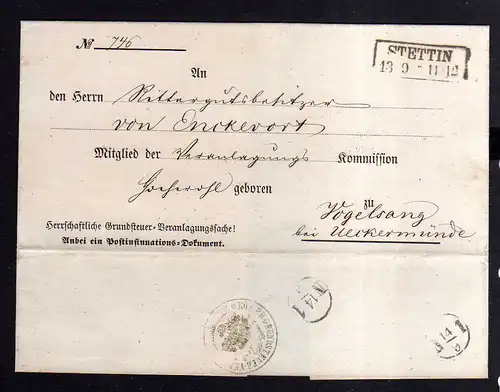 № 746
STETTIN
13 9 - 11-12
An
den Herrn Rittergutsbesitzer
von Enckevort
Mitglied der Veranlagungs Kommission
Hochwohl geboren
zu
Vogelsang
bei Ueckermünde
Herrschaftliche Grundsteuer-Veranlagungssache!
Anbei ein Postinsinuations-Dokument.
14
1
14
1